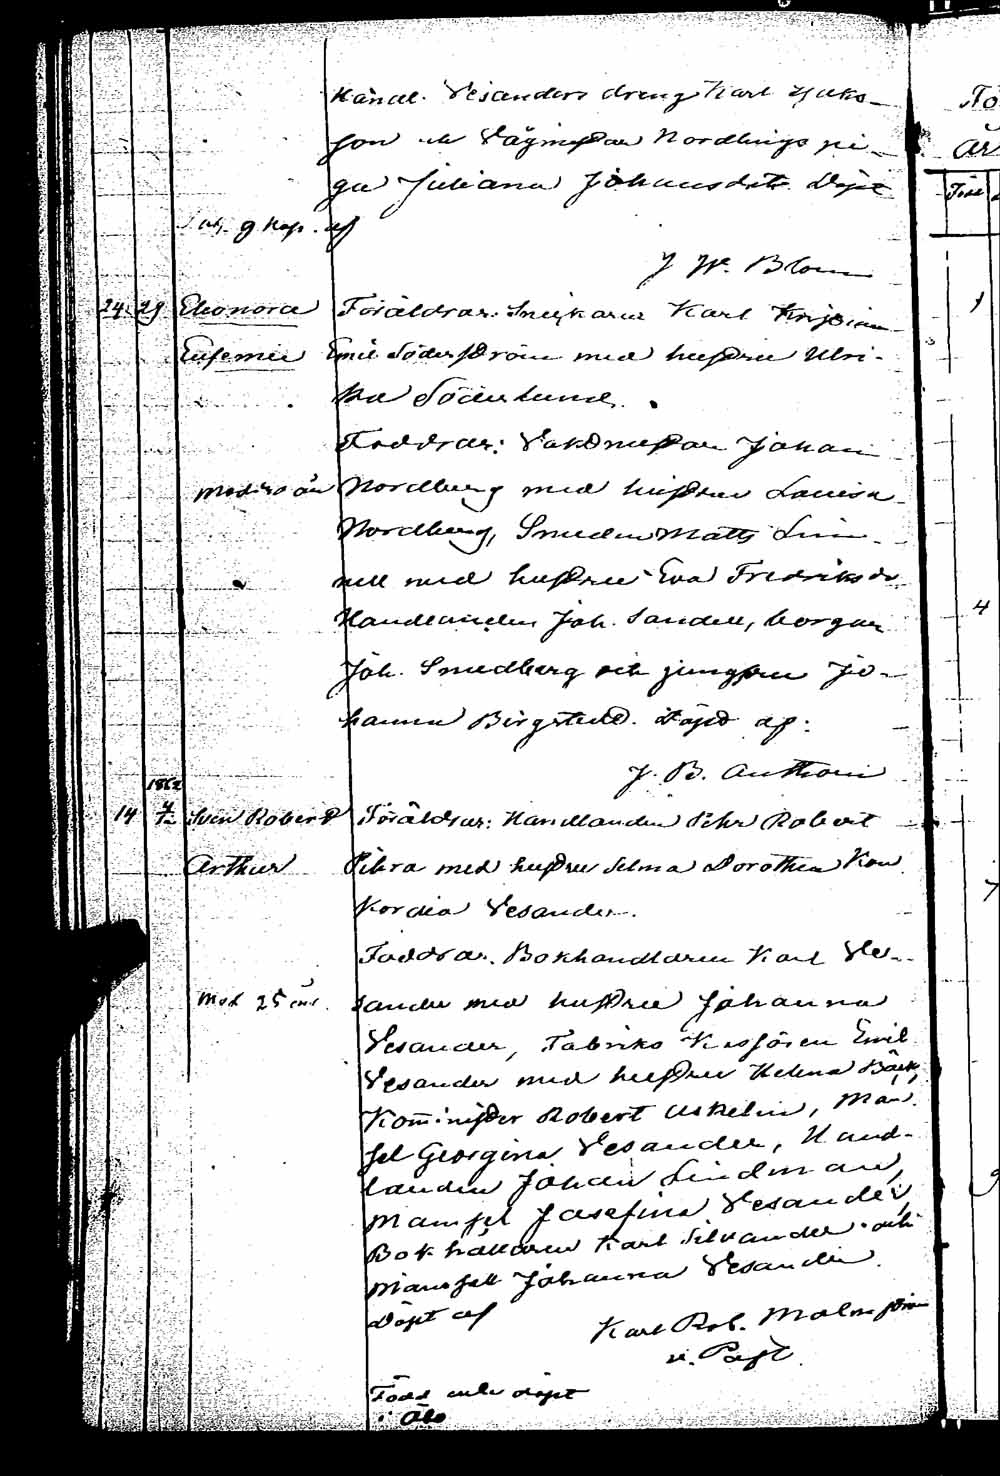 Handl. Vesanders dreng Karl Isaks-
son och Vågmestar Nordlings pi-
ga Juliana Johansdotr. Döpt
af
J. W. Blom
24 29 Eleonora Föräldrar: Snickaren Karl
Eufemie Emil Söderström med hustru Ulri-
ka Söderlund.
Faddrar: Vaktmestaren Johan
Nordberg med hustru Lovisa
Nordberg, Smeden Matts Lin-
nell med hustru Eva Fredriksdr
Handlanden Joh. Sandell, borgar
Joh. Smedberg och jungfru Jo-
hanna Birgstedt. Döpt af:
J. B. Anthoni
1862
14 Sven Robert Föräldrar: Handlanden Pehr Robert
Arthur med hustru Selma Dorothea Kon
kordia Vesander.
Faddrar. Bokhandlaren Karl Ve-
Mod. 25 år. sander med hustru Johanna
Vesander, Fabriks Kassören Emil
Vesander med hustru Helena Bäck,
Kom̄inister Robert Askelin, Mam
sel Georgina Vesander, Hand-
landen Johan Lindman,
Mamsel Josefina Vesander,
Bokhållaren Karl Silvander och
Mamsell Johanna Vesander.
Döpt af
Karl Rob. Malmström
v. Past.
Född och döpt
i Åbo
Fö
År
Född
1
4
7
9